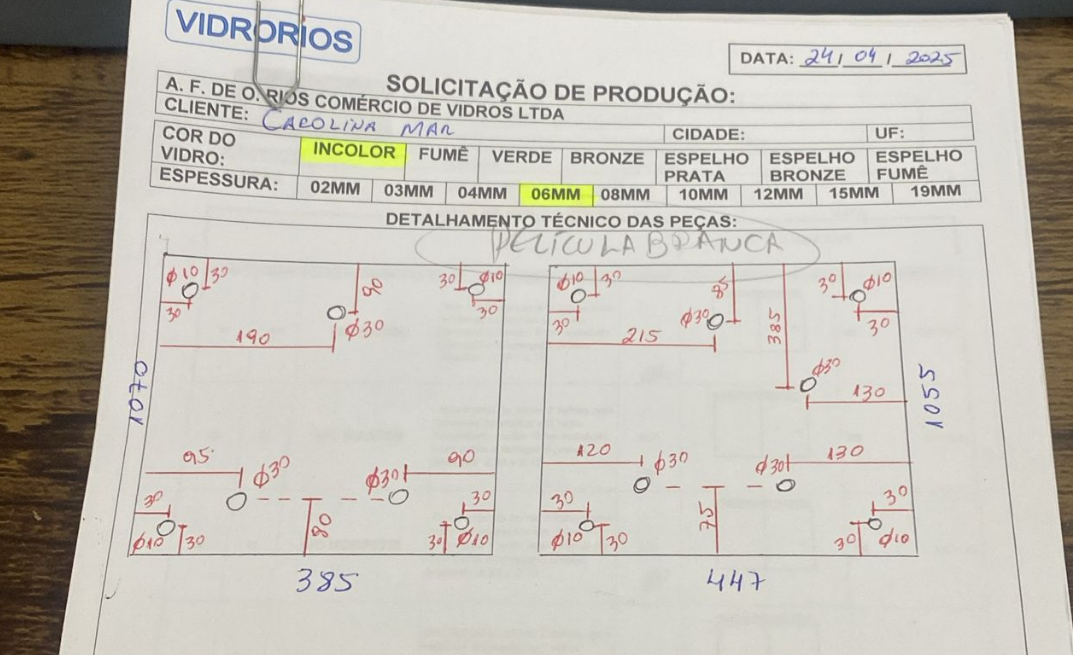 VIDRORIOS
DATA: 24/04/2025
SOLICITAÇÃO DE PRODUÇÃO:
A. F. DE O. RIOS COMÉRCIO DE VIDROS LTDA
CLIENTE: CAROLINA MAR CIDADE: UF:
COR DO VIDRO: INCOLOR FUMÊ VERDE BRONZE ESPELHO PRATA ESPELHO BRONZE ESPELHO FUMÊ
ESPESSURA: 02MM 03MM 04MM 06MM 08MM 10MM 12MM 15MM 19MM
DETALHAMENTO TÉCNICO DAS PEÇAS:
PELÍCULA BRANCA
ϕ10 30 90 30 ϕ10 ϕ10 30 85 385 30 ϕ10
30 ϕ30 30 30 ϕ30 30
190 215
ϕ30
1070 130 1055
95 ϕ30 ϕ30 90 120 ϕ30 ϕ30 130
30 80 30 30 75 30
ϕ10 30 30 ϕ10 ϕ10 30 30 ϕ10
385 447